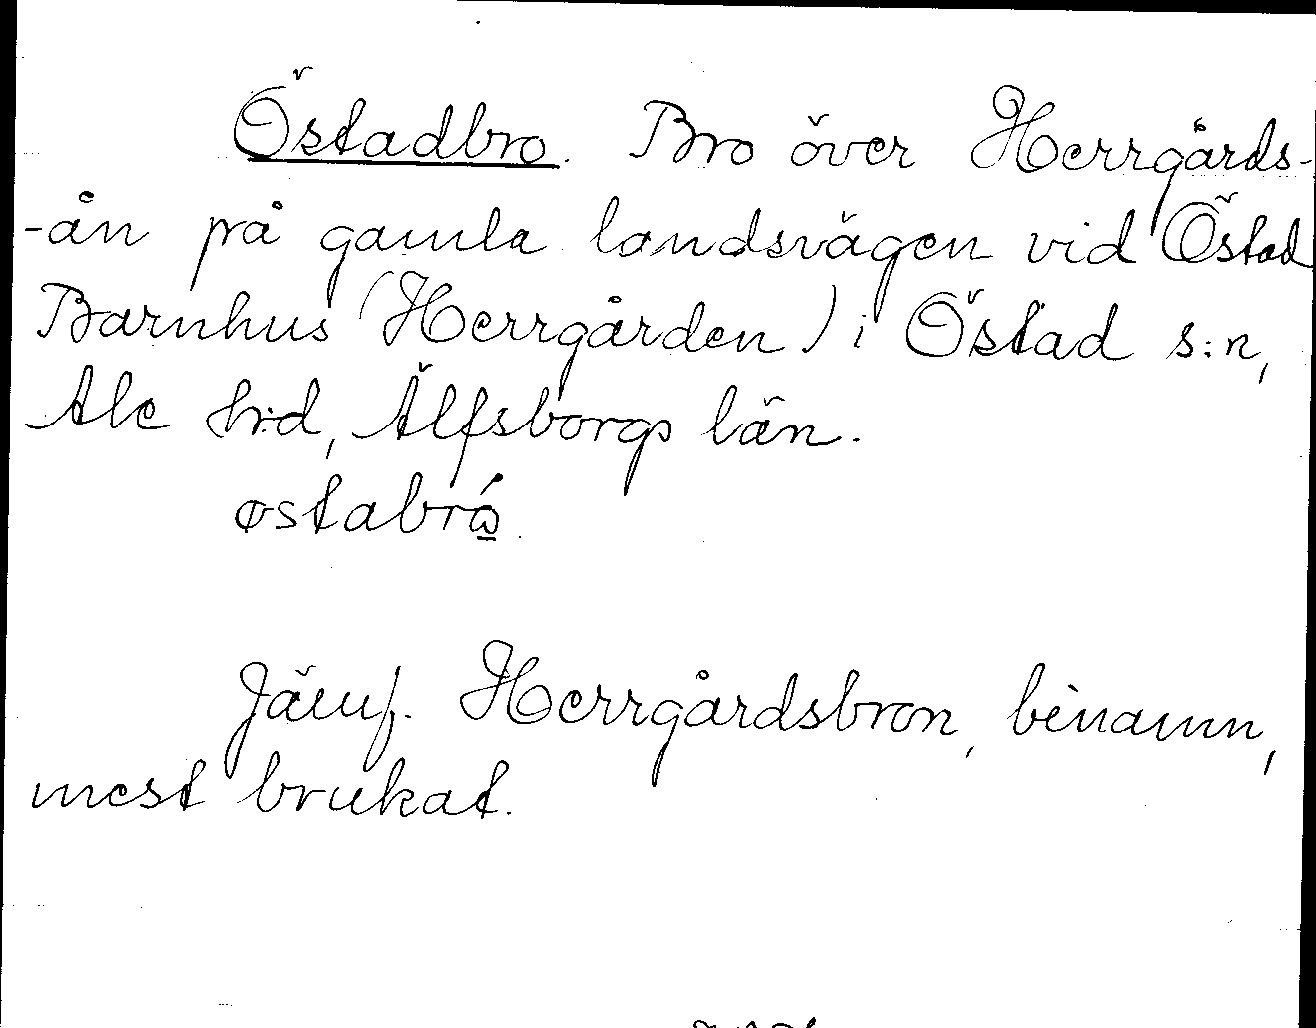 Östadbro. Bro över Herrgårds-
-ån på gamla landsvägen vid Östad
Barnhus (Herrgården) i Östad s:n,
Ale h:d, Älfsborgs län.
østabró̲
Jämf. Herrgårdsbron, binamn,
mest brukat.